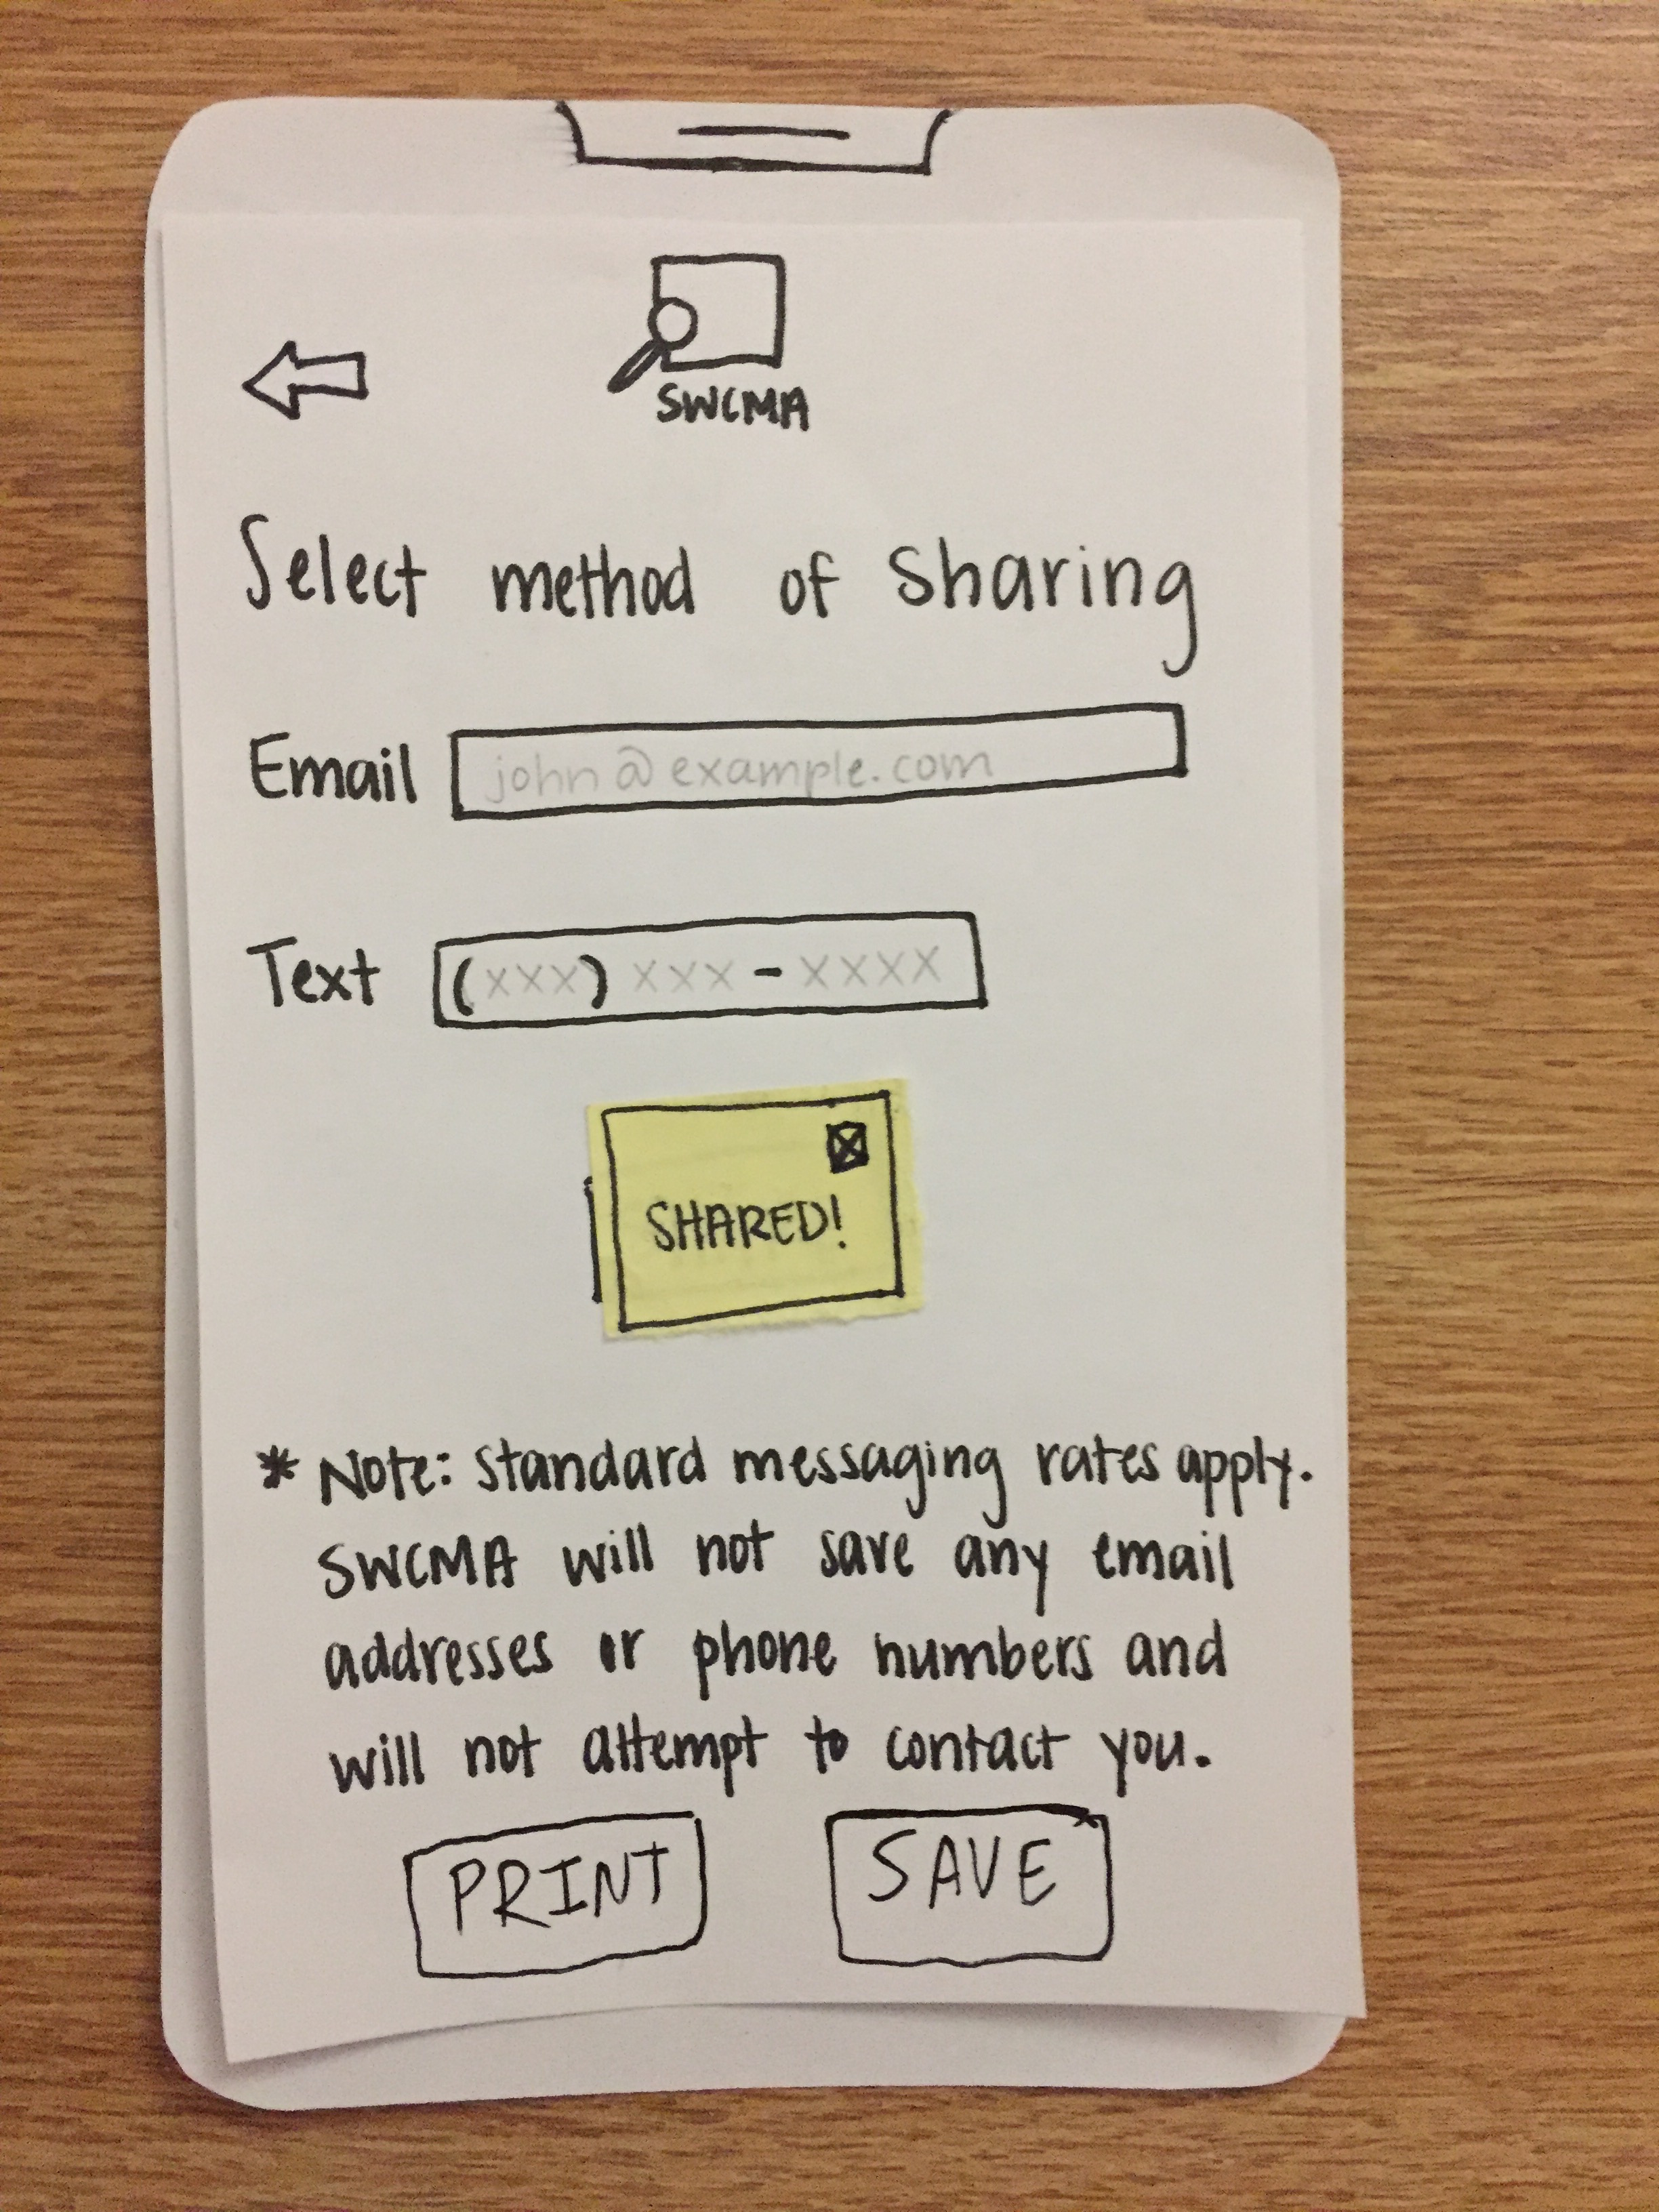 SWCMA
Select method of sharing
Email john@example.com
Text (xxx) xxx - xxxx
SHARED!
* Note: standard messaging rates apply.
SWCMA will not save any email
addresses or phone numbers and
will not attempt to contact you.
PRINT SAVE